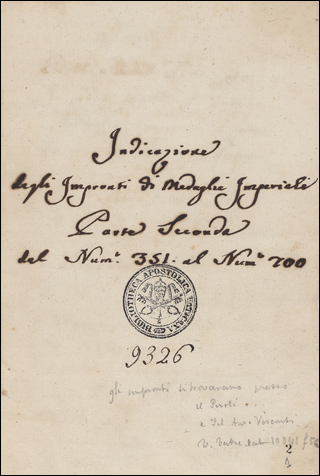 Indicazione
degli Impronti di Medaglie Imperiali
Parte Seconda
dal Num.° 351. al Num.° 700
BIBLIOTHECA APOSTOLICA VATICANA
9326
gli impronti si trovavano presso
il
e Visconti
2